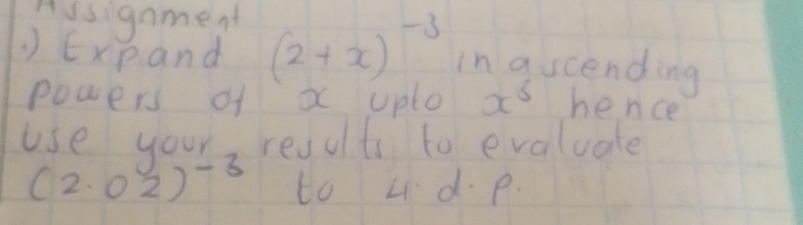 Assignment
.) Expand (2+x)⁻³ in ascending
powers of x upto x³ hence
use your results to evaluate
(2.02)⁻³ to 4.d.p.